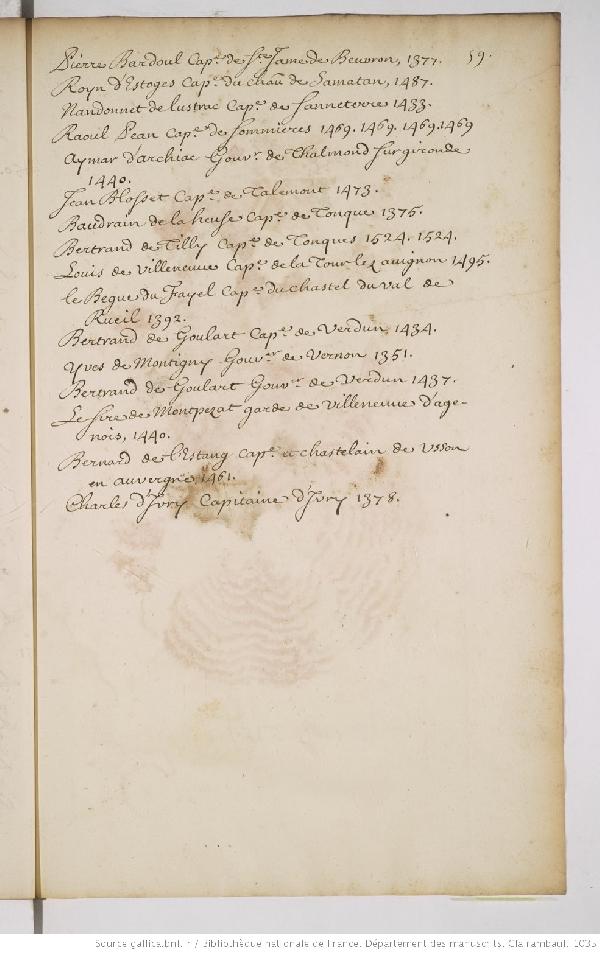 Pierre Bardoul Cap.ne de St Jame de Beuuron, 1377. 59.
Royn d'Estoges Cap.ne du chau de Samatan, 1487.
Nandonnet de lustrac Cap.ne de Sanneterre 1433.
Raoul Pean Cap.ne de Sommieres 1469. 1469. 1469. 1469
Aymar d'archiac Gouvr. de Thalmond sur gironde
1440.
Jean Blosset Cap.ne de Talemont 1473.
Baudrain de la heuse Cap.ne de Tonque 1375.
Bertrand de Tilly Cap.ne de Tonques 1524. 1524.
Louis de Villeneuue Cap.ne de la Tour lez auignon 1495.
le Begue du Fayel Cap.ne du chastel du val de
Rueil 1392.
Bertrand de Goulart Cap.ne de Verdun 1434.
Yves de Montigny Gouvr. de Vernon 1351.
Bertrand de Goulart Gouvr. de Verdun 1437.
Le sire de Montpezat garde de Villeneuue d'age-
nois, 1440.
Bernard de l'Estang Cap.ne et chastelain de Usson
en auvergne 1461.
Charles d'Jvry Capitaine d'Jvry 1378.
Source gallica.bnf.fr / Bibliothèque nationale de France. Département des manuscrits. Clairambault 1035